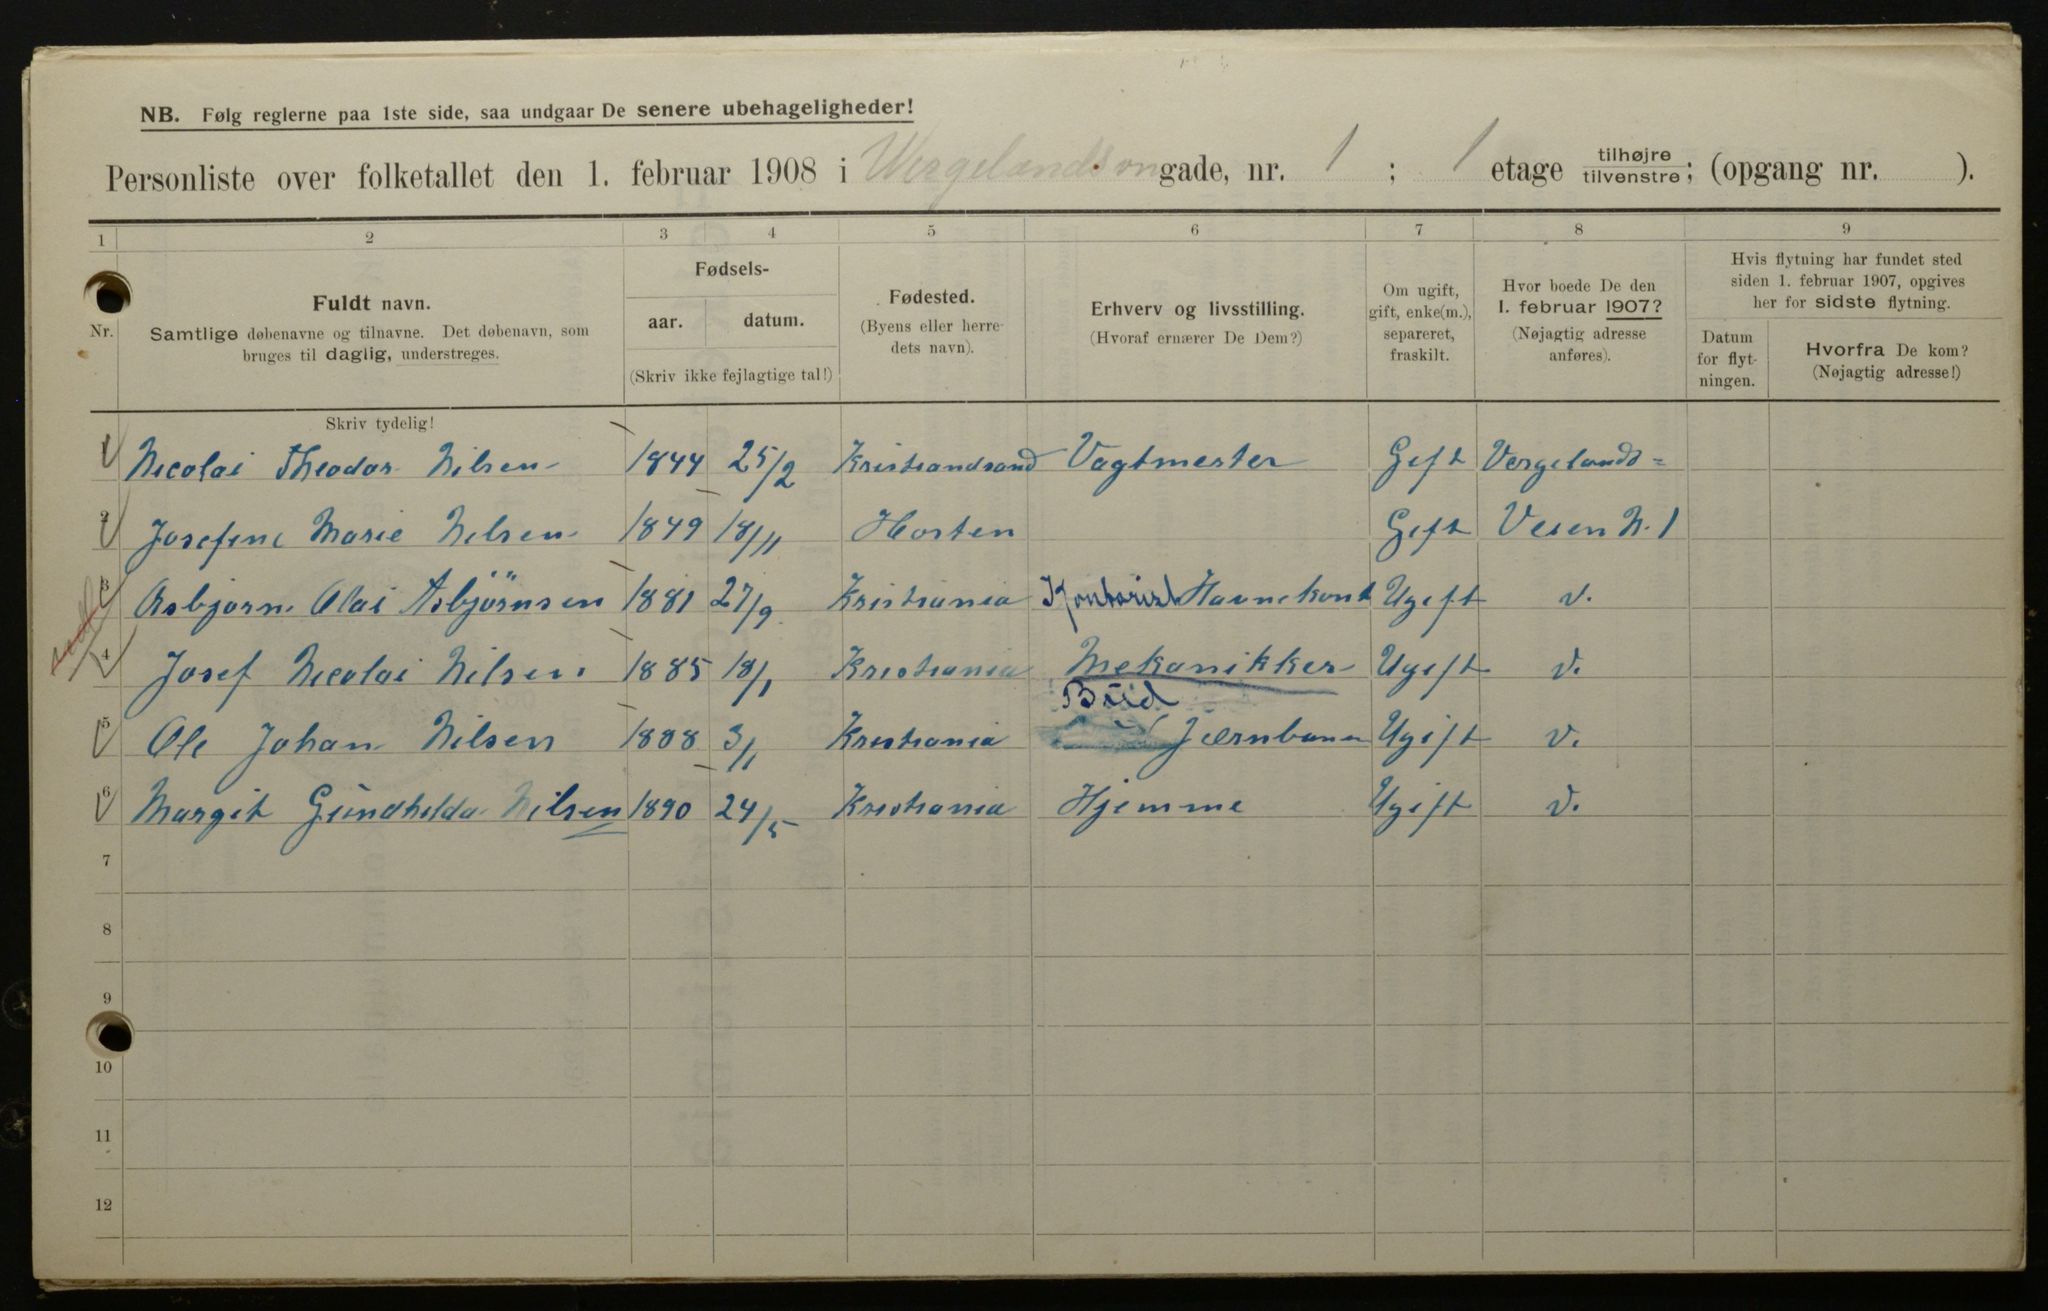 NB. Følg reglerne paa 1ste side, saa undgaar De senere ubehageligheder!
Personliste over folketallet den 1. februar 1908 i Wergelandsvngade, nr. 1 ; 1 etage tilhøjre tilvenstre; (opgang nr. ).
1 2 3 4 5 6 7 8 9
Nr.
Fuldt navn.
Samtlige døbenavne og tilnavne. Det døbenavn, som
bruges til daglig, understreges.
Skriv tydelig!
Fødsels-
aar. datum.
(Skriv ikke fejlagtige tal!)
Fødested.
(Byens eller herre-
dets navn).
Erhverv og livsstilling.
(Hvoraf ernærer De Dem?)
Om ugift,
gift, enke(m.),
separeret,
fraskilt.
Hvor boede De den
1. februar 1907?
(Nøjagtig adresse
anføres).
Hvis flytning har fundet sted
siden 1. februar 1907, opgives
her for sidste flytning.
Datum
for flyt-
ningen.
Hvorfra De kom?
(Nøjagtig adresse!)
1 Nicolai Theodor Nilsen 1844 25/2 Kristiandsand Vagtmester Gift Vergelands=
2 Josefine Marie Nilsen 1849 18/11 Horten Gift Veien N. 1
3 Asbjørn Olai Asbjørnsen 1881 27/9 Kristiania Kontorist Havnekont Ugift v.
4 Josef Nicolai Nilsen 1885 18/1 Kristiania Mekanikker Ugift v.
5 Ole Johan Nilsen 1888 3/1 Kristiania Bud Jærnbanen Ugift v.
6 Margit Gundhilda Nilsen 1890 24/5 Kristiania Hjemme Ugift v.
7
8
9
10
11
12